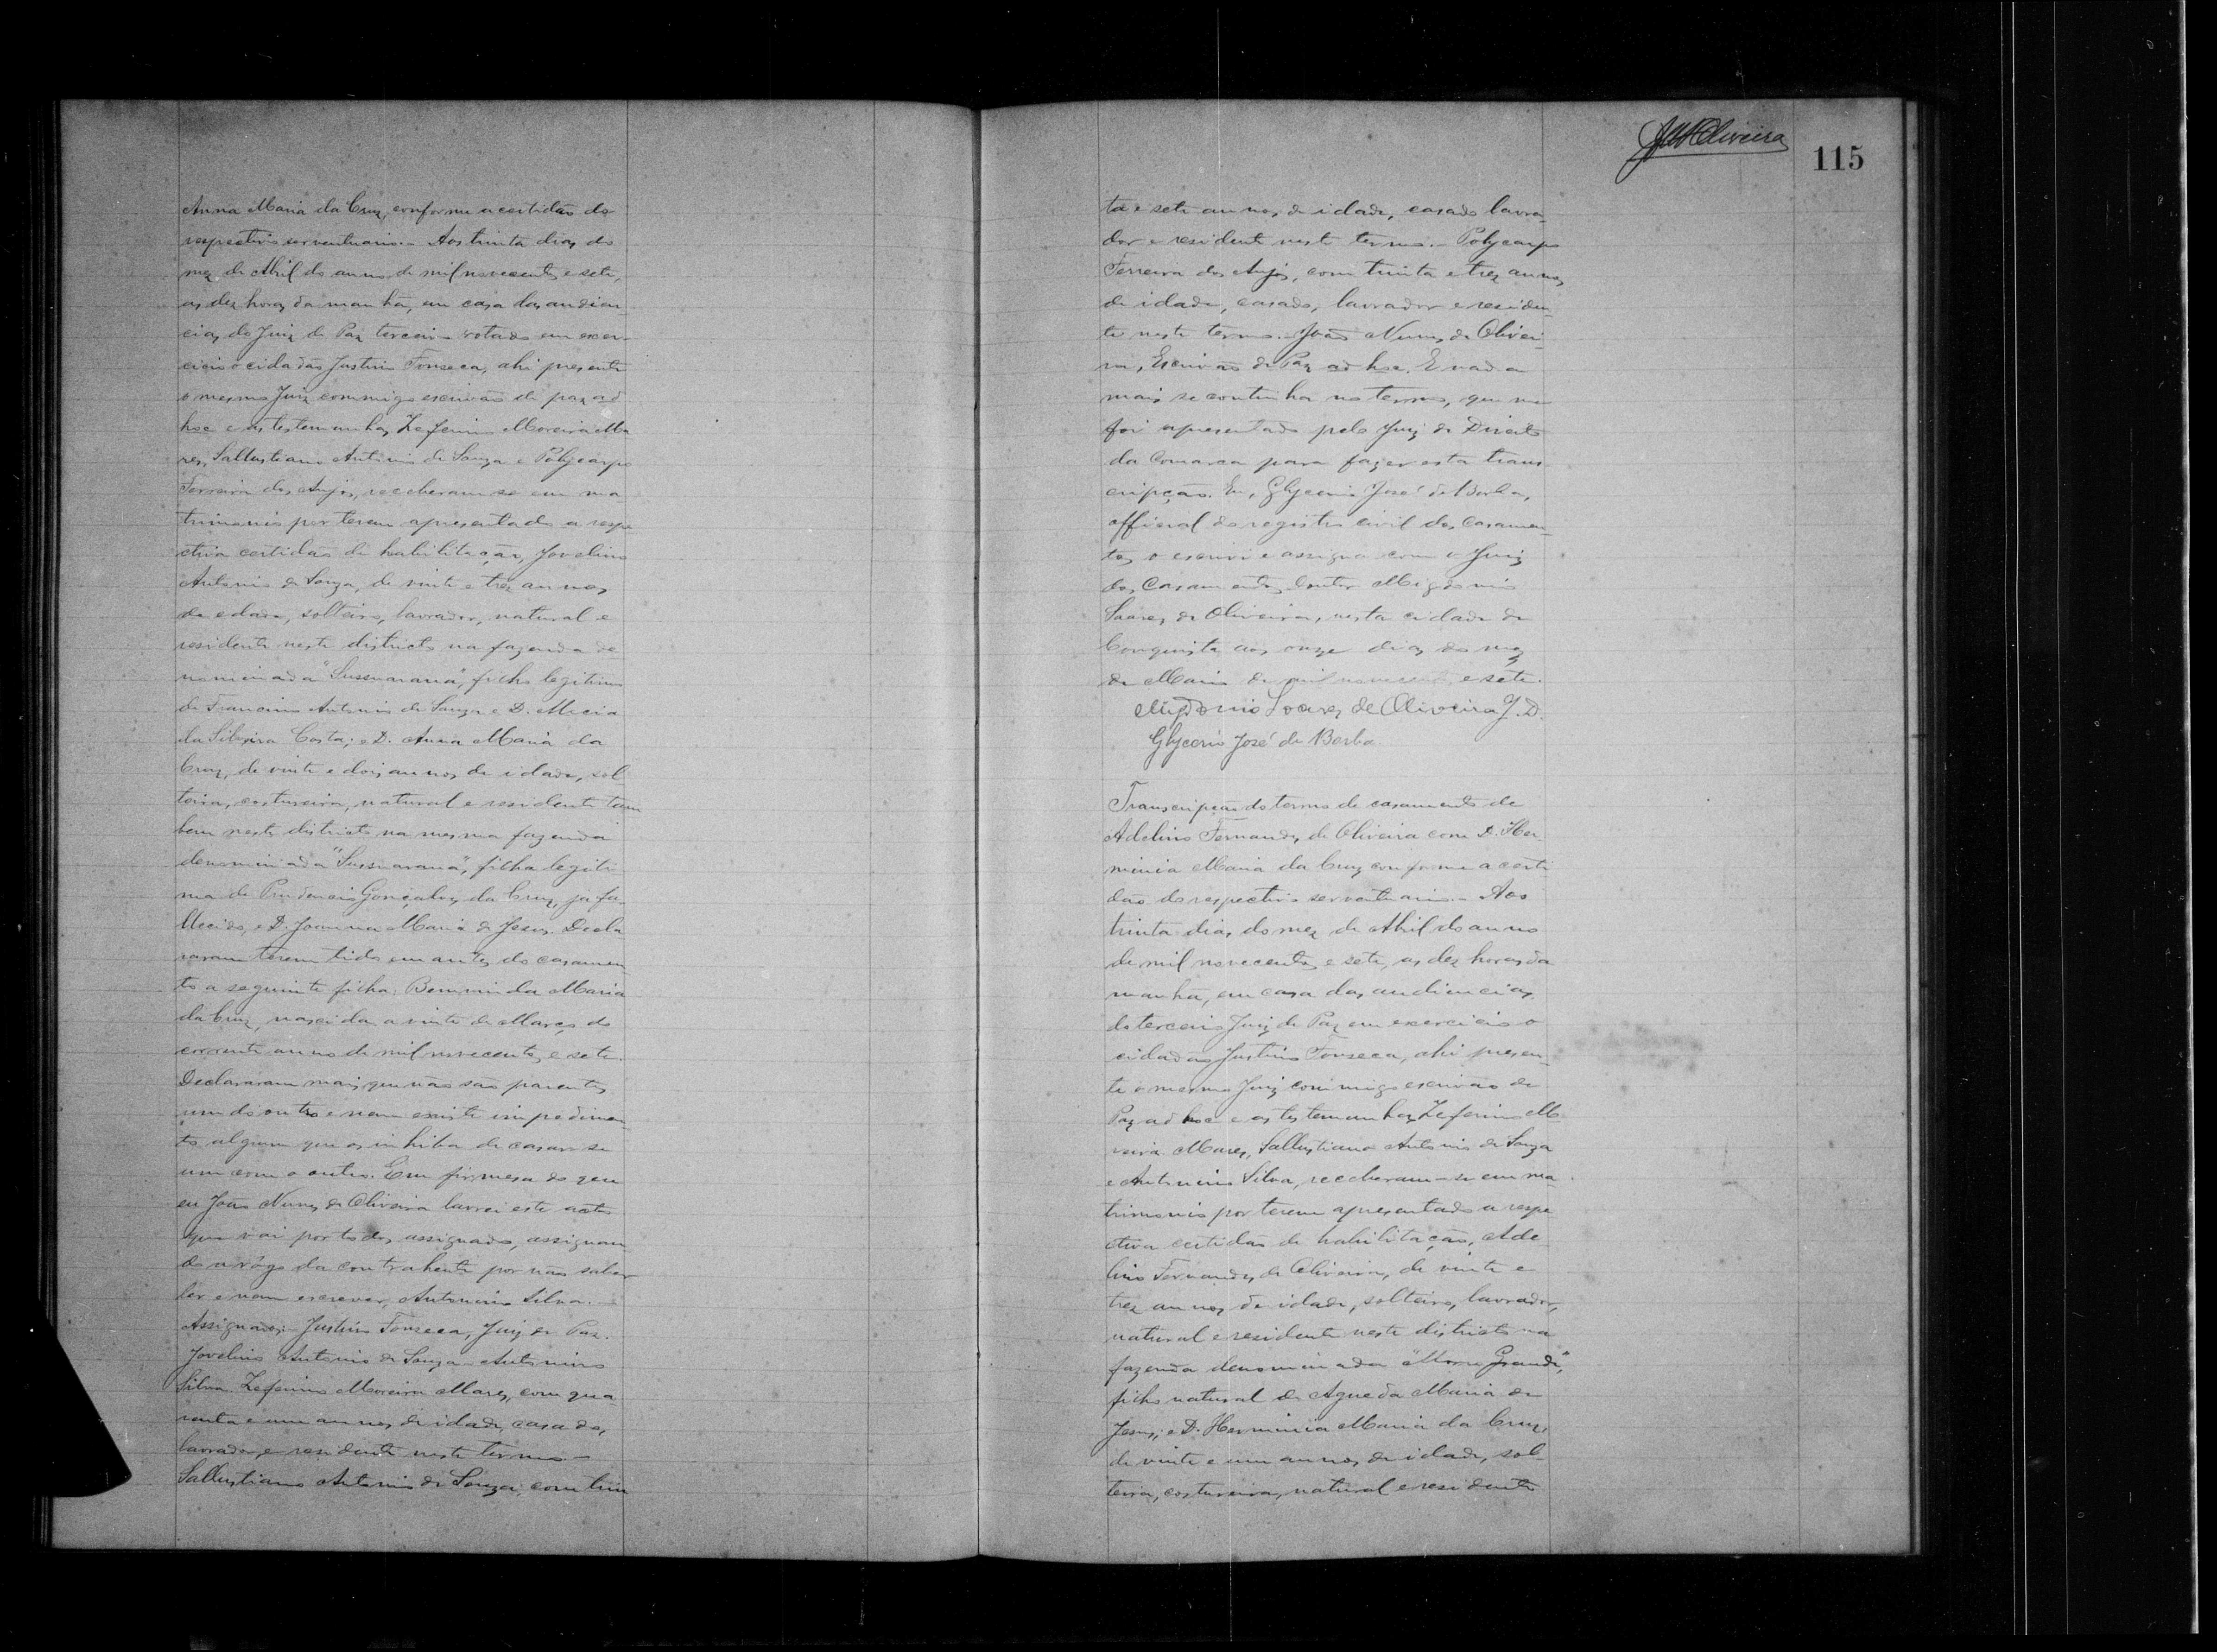 Anna Maria da Cruz, conforme a certidão do
respectivo serventuario. - Aos trinta dias do
mez de Abril do anno de mil novecentos e sete,
as dez horas da manhã, em casa das audien
cias do Juiz de Paz terceiro votado em exer-
cicio o cidadão Justino Fonseca, ahi presente
o mesmo Juiz commigo escrivão de paz ad
hoc e as testemunhas Zeferino Moreira Ma
res, Sallustiano Antonio de Souza e Polycarpo
Ferreira dos Anjos, receberam-se em ma
trimonio por terem apresentado a respe
ctiva certidão de habilitação, Jovelino
Antonio de Souza, de vinte e trez annos
de edade, solteiro, lavrador, natural e
residente neste districto na fazenda de
nominada "Sussuarana", filho legitimo
de Francino Antonio de Souza e D. Mecia
da Silveira Costa; e D. Anna Maria da
Cruz, de vinte e dois annos de idade, sol
teira, costureira, natural e residente tam
bem neste districto na mesma fazenda
denominada "Sussuarana", filha legiti
ma de Prudencio Gonçalves da Cruz, ja fa-
llecido, e D. Joanna Maria de Jesus. Decla
raram terem tido em antes do casamen
to a seguinte filha: Bemvinda Maria
da Cruz, nascida a vinte de Março do
corrente anno de mil novecentos e sete.
Declararam mais que não são parentes
um do outro e nem existe impedimen
to algum que os inhiba de casar-se
um com o outro. Em firmesa do que
eu João Nunes de Oliveira lavrei este acto
que vai por todos assignado, assignan
do a rôgo da contrahente por não saber
ler e nem escrever, Antonino Silva.
Assignados: Justino Fonseca, Juiz de Paz.
Jovelino Antonio de Souza - Antonino
Silva. Zeferino Moreira Mares, com qua
renta e um annos de idade, casado,
lavrador e residente neste termo. -
Sallustiano Antonio de Souza, com trin
JMSOliveira
115
ta e sete annos de idade, casado lavra-
dor e residente neste termo. - Polycarpo
Ferreira dos Anjos, com trinta e trez annos
de idade, casado, lavrador e residen
te neste termo. João Nunes de Olivei
ra, Escrivão de Paz ad hoc. E nada
mais se continha no termo, que me
foi apresentado pelo Juiz de Direito
da Comarca para fazer esta trans
cripção. Eu, Glycerio José de Borba,
official do registro civil dos casamen
tos o escrivi e assigno com o Juiz
dos Casamentos Doutor Migdonio
Soares de Oliveira, nesta cidade de
Conquista aos onze dias do mez
de Maio de mil novecentos e sete.
Migdonio Soares de Oliveira J.D.
Glycerio José de Borba
Transcripção do termo de casamento de
Adelino Fernandes de Oliveira com D. Her
minia Maria da Cruz conforme a certi
dão do respectivo serventuario. - Aos
trinta dias do mez de Abril do anno
de mil novecentos e sete, as dez horas da
manhã, em casa das audiencias
do terceiro Juiz de Paz em exercicio o
cidadão Justino Fonseca, ahi presen
te o mesmo Juiz commigo escrivão de
Paz ad hoc e as testemunhas Zeferino Mo
reira Mares, Sallustiano Antonio de Souza
e Antonino Silva, receberam-se em ma
trimonio por terem apresentado a respe
ctiva certidão de habilitação, Ade
lino Fernandes de Oliveira, de vinte e
trez annos de idade, solteiro, lavrador,
natural e residente neste districto na
fazenda denominada "Morro Grande",
filho natural de Agueda Maria de
Jesus; e D. Herminia Maria da Cruz,
de vinte e um annos de idade, sol-
teira, costureira, natural e residente